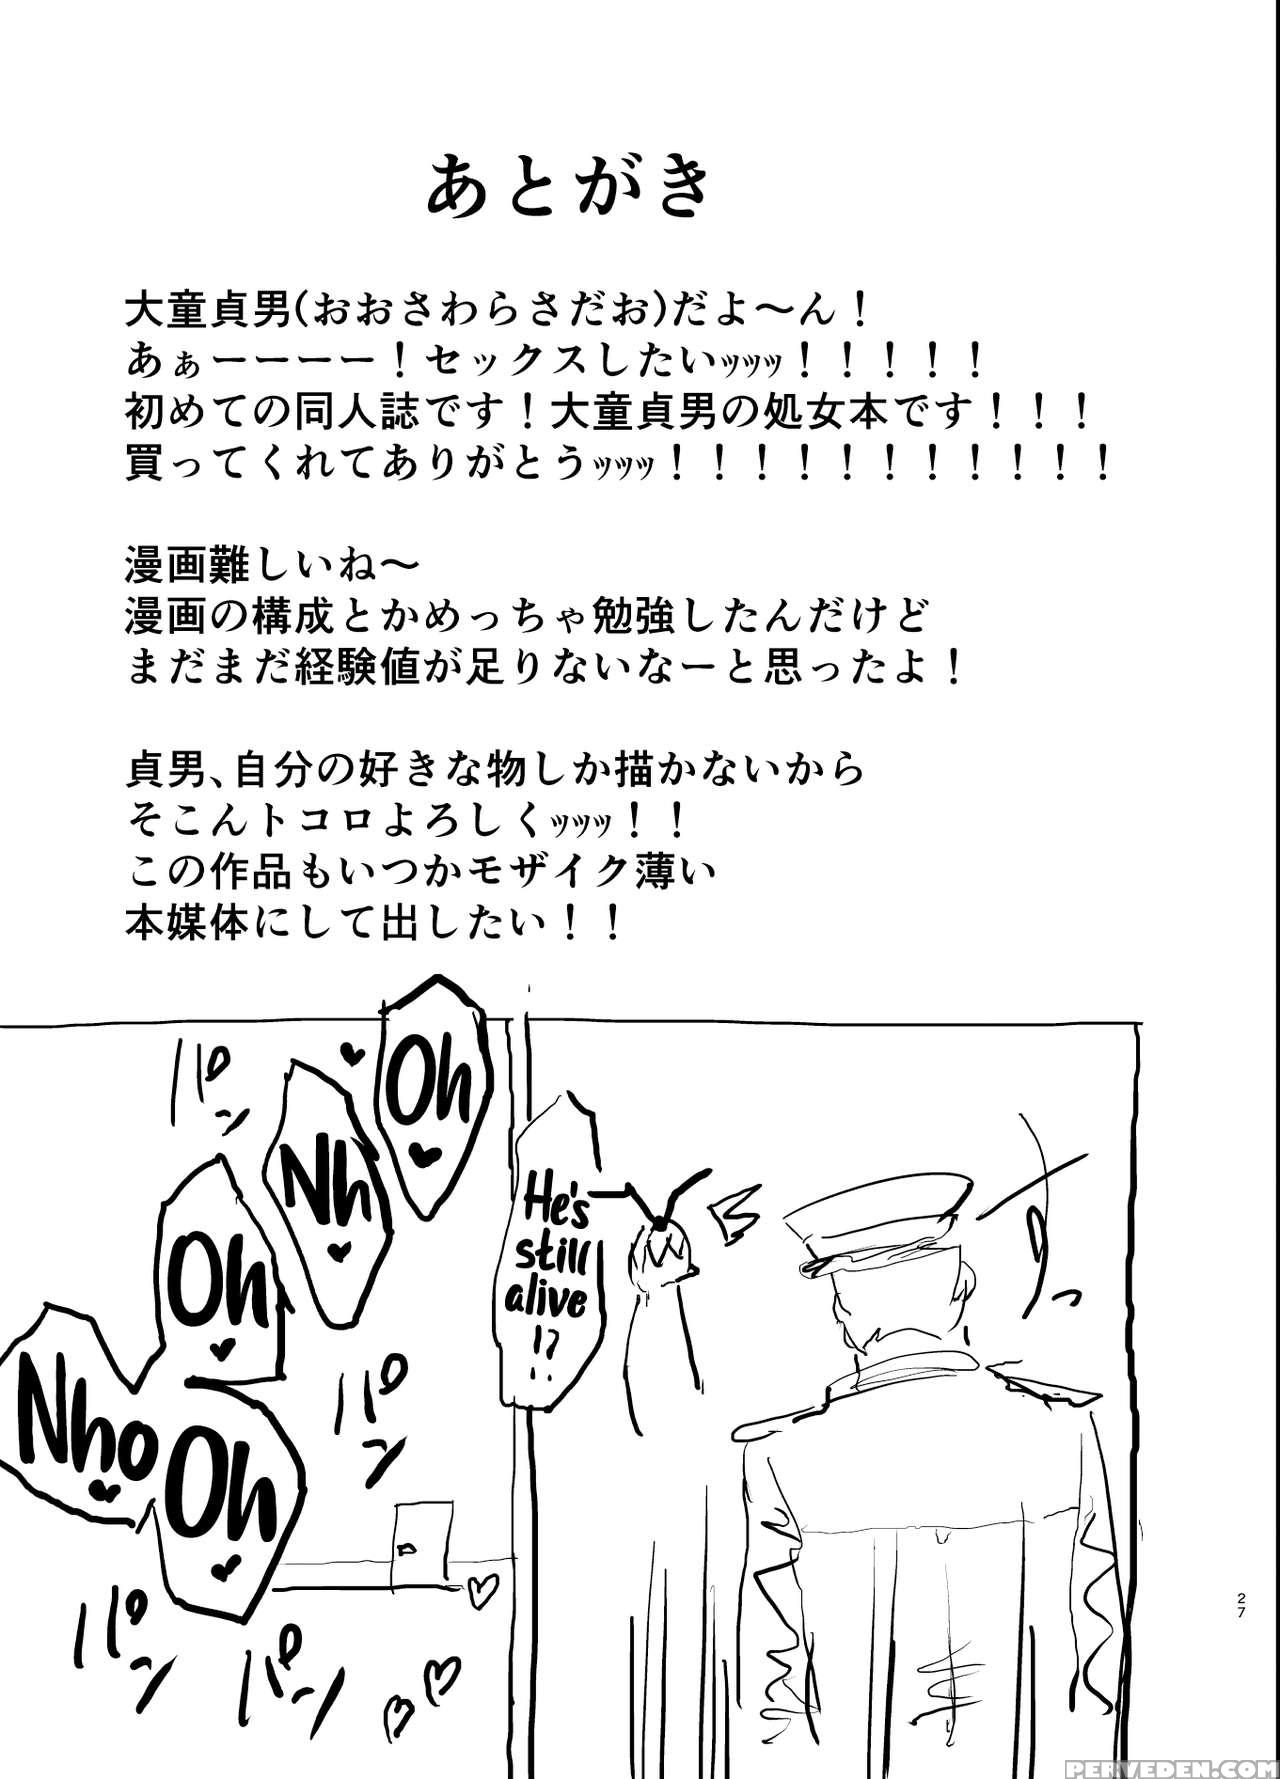 あとがき
大童貞男(おおさわらさだお)だよ～ん！
あぁーーーー！セックスしたいｯｯｯｯ！！！！！
初めての同人誌です！大童貞男の処女本です！！！
買ってくれてありがとうｯｯｯｯ！！！！！！！！！！！
漫画難しいね～
漫画の構成とかめっちゃ勉強したんだけど
まだまだ経験値が足りないなーと思ったよ！
貞男、自分の好きな物しか描かないから
そこんトコロよろしくｯｯｯｯ！！
この作品もいつかモザイク薄い
本媒体にして出したい！！
Oh♥
Nh♥
Oh♥
Nho♥
Oh♥
パン
パン
パン
パン
He's
still
alive
!?
27
PERVEDEN.COM